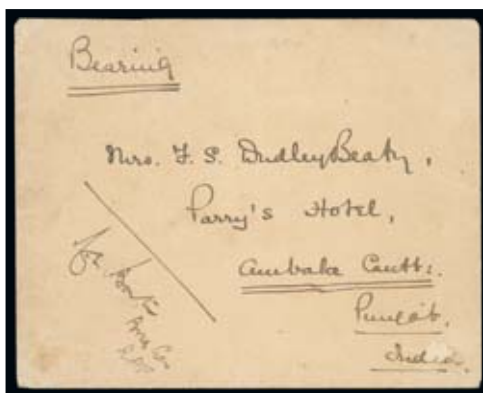 Bearing
Mrs. F. S. Dudley Beaty,
Parry's Hotel,
Ambala Cantt:.
Punjab.
India.